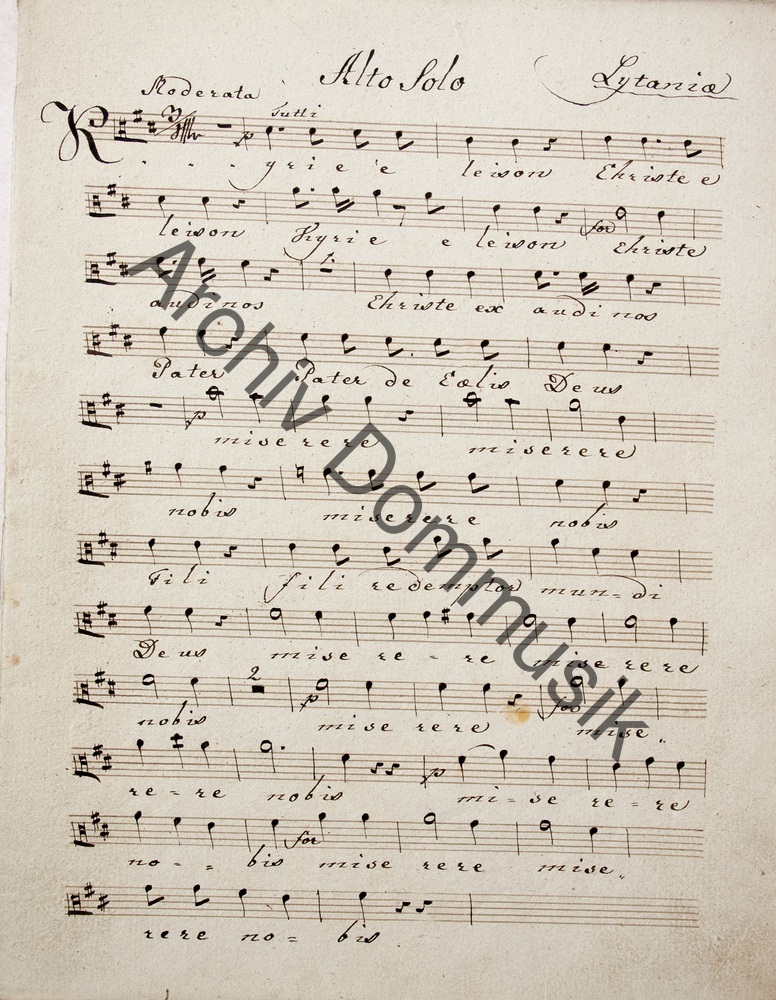 Alto Solo
Lytaniæ
Moderata
Tutti
K . . . yrie e leison Christe e
leison Kyrie e leison Christe
for
audi nos Christe ex audi nos
Pater Pater de Cœlis Deus
p
miserere miserere
nobis miserere nobis
Fili fili redemptor mun=di
Deus mise re - re miserere
2
nobis mise rere mise„
p for
re=re nobis mi=se re=re
p
no- = bis mise rere mise„
for
rere no= bis.
Archiv Dommusik